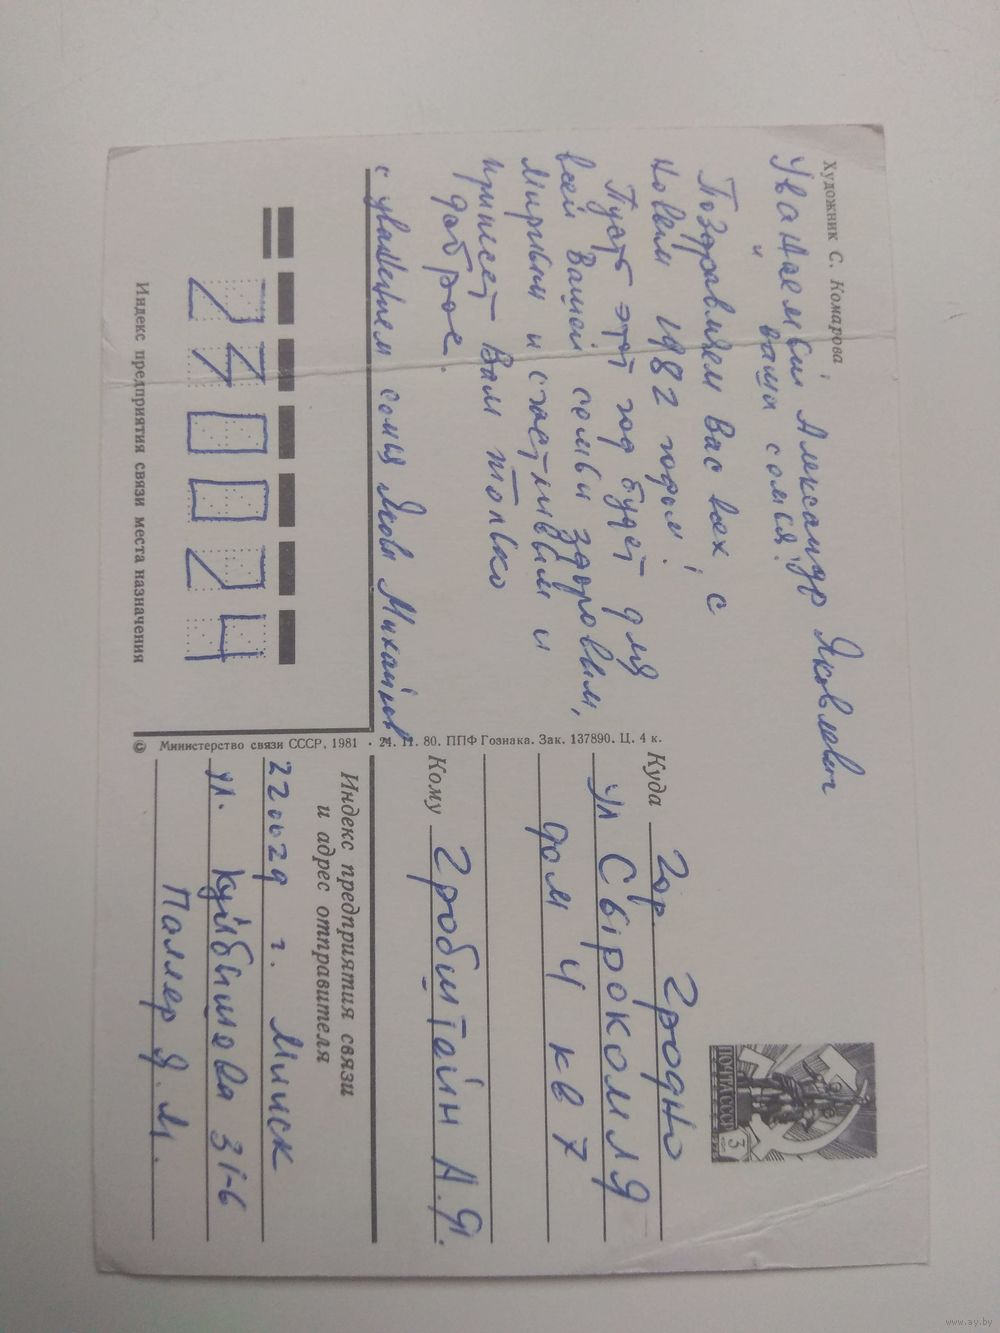 Художник С. Комарова
Уважаемый Александр Яковлевич
и ваша семья!
Поздравляем Вас всех с
Новым 1982 годом!
Пусть этот год будет для
всей Вашей семьи здоровым,
мирным и счастливым и
принесет Вам только
доброе.
с уважением семья
Индекс предприятия связи места назначения
© Министерство связи СССР, 1981 · 24. 11. 80. ППФ Гознака. Зак. 137890. Ц. 4 к.
ПОЧТА СССР
3
коп
Куда гор. Гродно
ул Сырокомля
дом 4 кв 7
Кому Гробштайн А.Я.
Индекс предприятия связи
и адрес отправителя
220029 г. Минск
ул. Куйбышева 31-6
Паллер Я. М.
www.ay.by